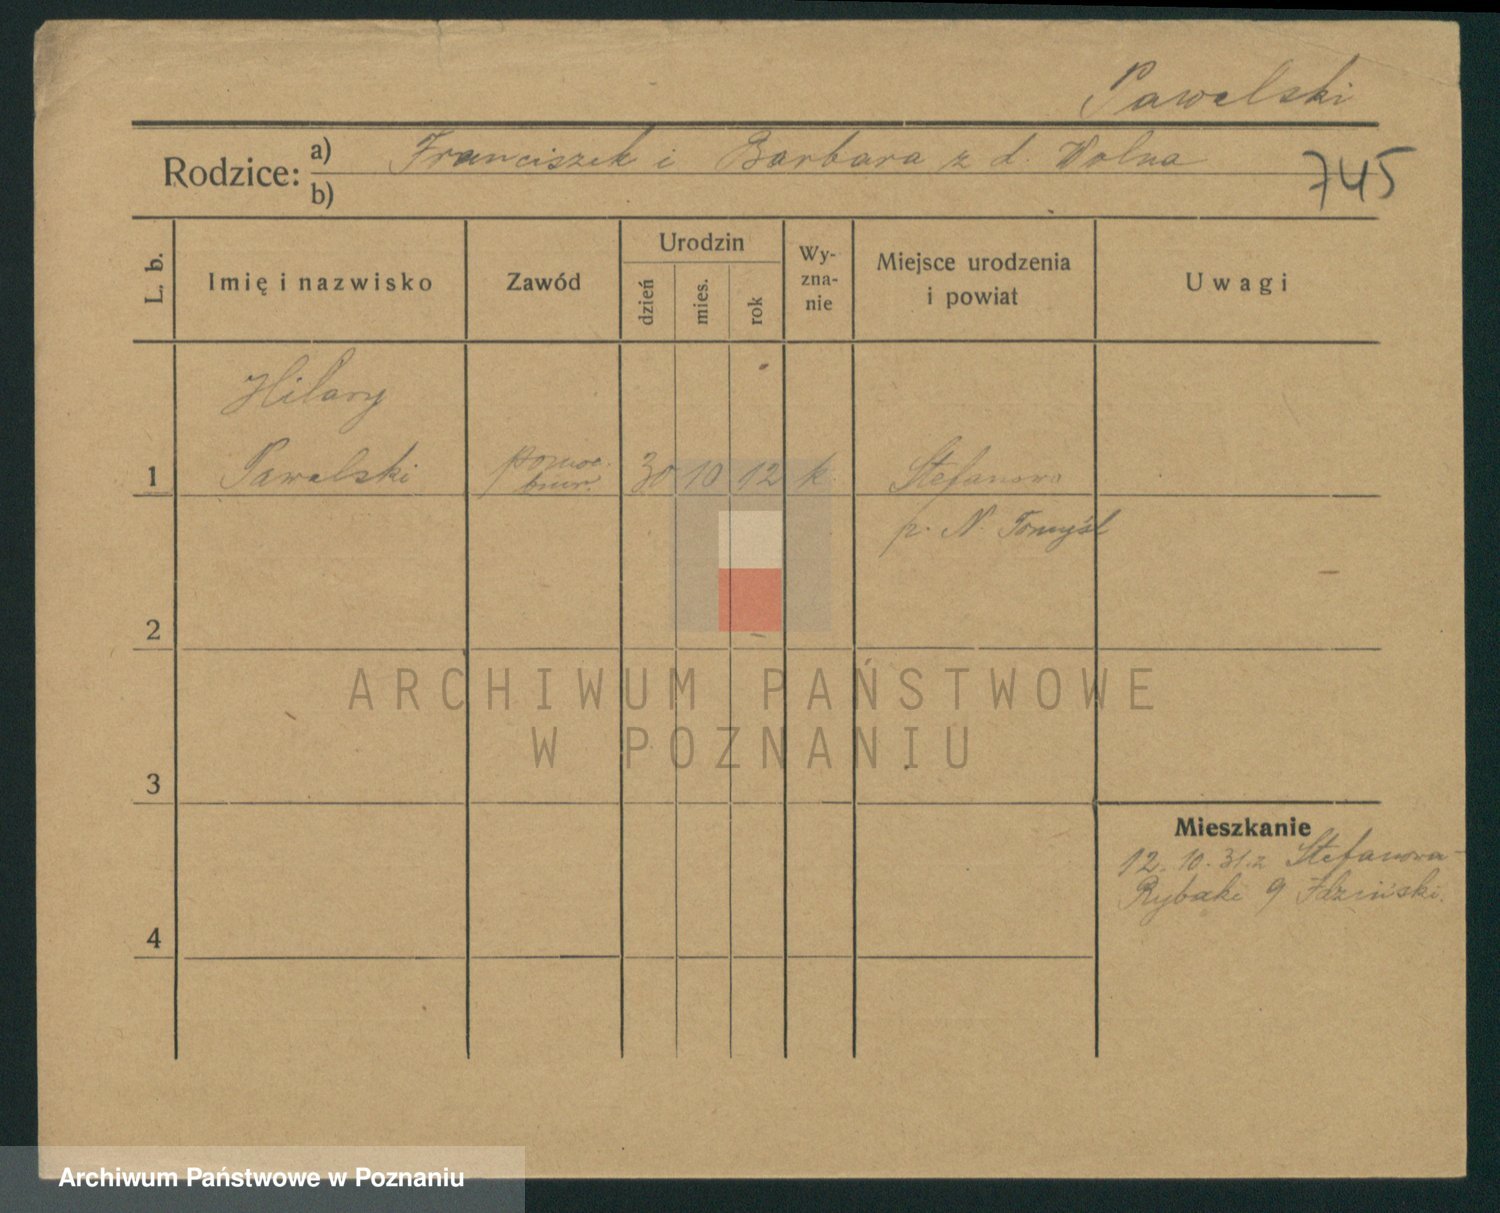 Pawelski
Rodzice: a) Franciszek i Barbara z d. Wolna
b)
745
L. b.
Imię i nazwisko
Zawód
Urodzin
dzień
mies.
rok
Wy-
zna-
nie
Miejsce urodzenia
i powiat
Uwagi
Hilary
1 Pawelski
pomoc.
biur.
30 10 12 k. Stefanowo
p. N. Tomyśl
2
ARCHIWUM PAŃSTWOWE
W POZNANIU
3
Mieszkanie
12. 10. 31. z Stefanowa
Rybaki 9
4
Archiwum Państwowe w Poznaniu